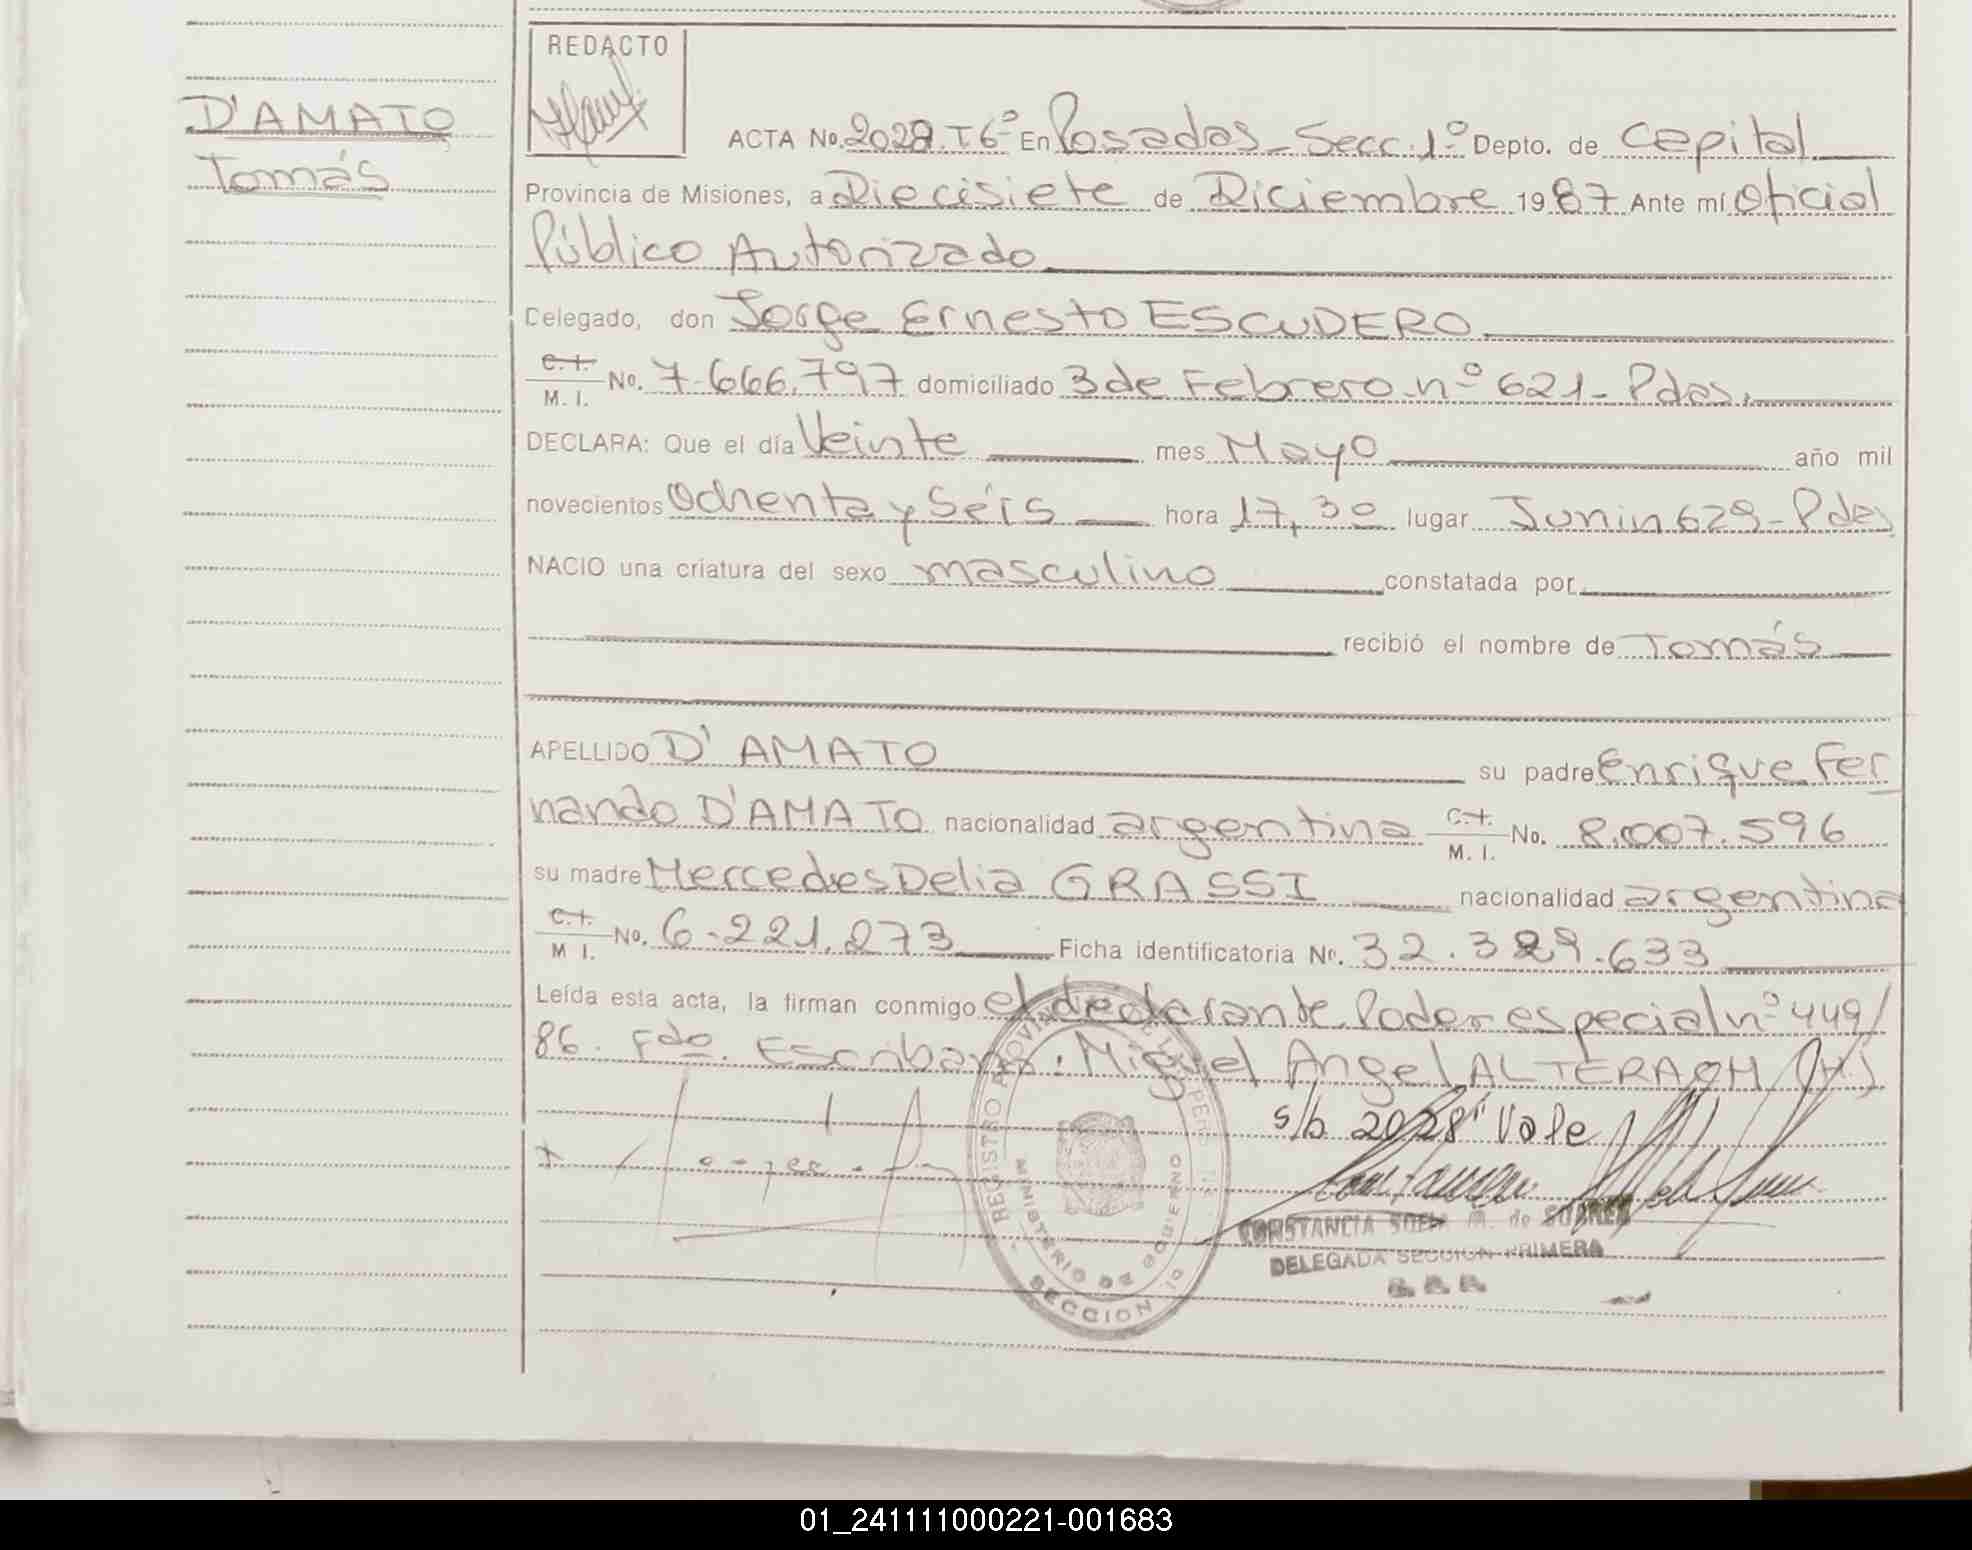 REDACTO
D'AMATO
Tomás
ACTA No. 2028. T6º En Posadas - Secc. 1º Depto. de Capital
Provincia de Misiones, a Diecisiete de Diciembre 1987 Ante mí Oficial
Público Autorizado
Delegado, don Jorge Ernesto ESCUDERO.
C.I. M. I. No. 7.666.797 domiciliado 3 de Febrero nº 621 - Pdas.
DECLARA: Que el día Veinte mes Mayo año mil
novecientos Ochenta y Séis hora 17,30 lugar Junin 629 - Pdas
NACIO una criatura del sexo masculino constatada por
recibió el nombre de Tomás
APELLIDO D' AMATO su padre Enrique Fer
nando D'AMATO nacionalidad argentina C.I. M. I. No. 8.007.596
su madre Mercedes Delia GRASSI nacionalidad argentina
C.I. M I. No. 6.221.273 Ficha identificatoria No. 32.329.633
Leída esta acta, la firman conmigo el declarante. Poder especial nº 449/
86. Fdo. Escribano: Miguel Angel ALTERACH (H.)
s/b 2028" Vale
REGISTRO PROVINCIAL DE LAS PERSONAS
MINISTERIO DE GOBIERNO
SECCION 1ª
CONSTANCIA SOFIA M. de SUAREZ
DELEGADA SECCION PRIMERA
01_241111000221-001683